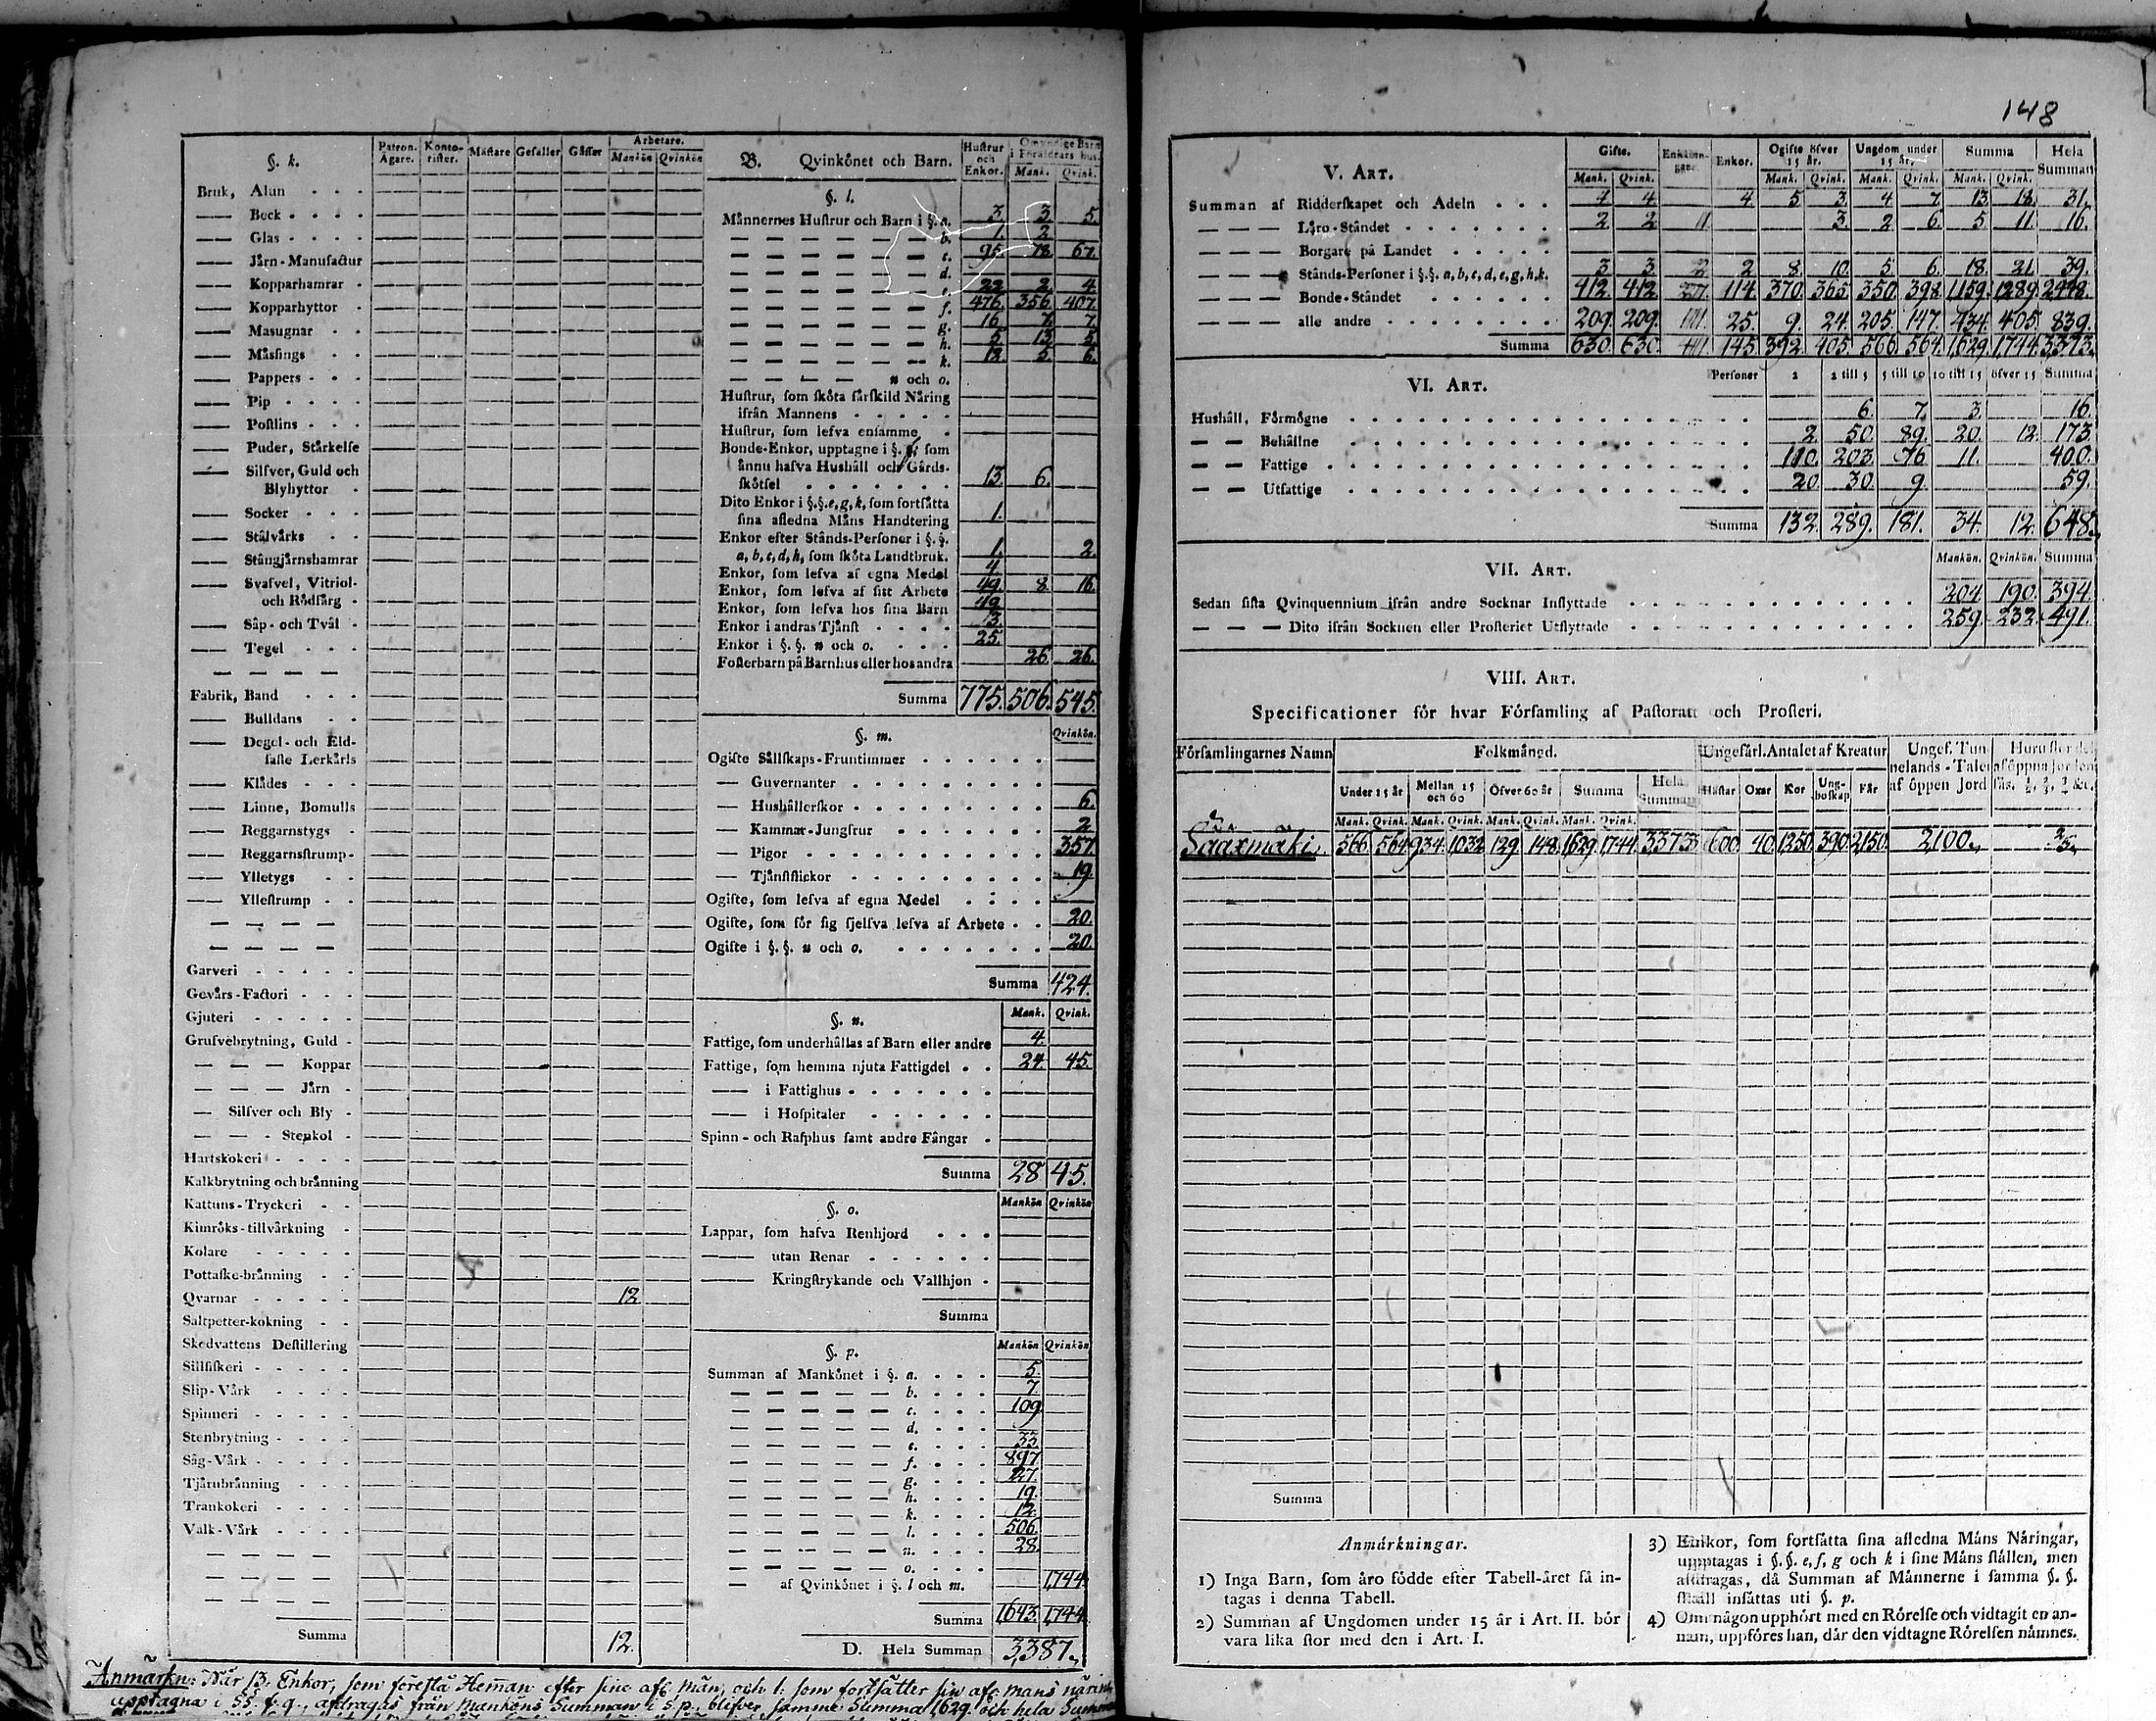 148
§. k.
Patron. Ägare. Konto-rister. Mäſtare Geſäller Gåſſar Arbetare. Mankön Qvinkön
Bruk, Alun
—— Beck
—— Glas
—— Järn-Manufactur
—— Kopparhamrar
—— Kopparhyttor
—— Masugnar
—— Mäſsings
—— Pappers
—— Pip
—— Poſtlins
—— Puder, Stärkelſe
—— Silfver, Guld och
Blyhyttor
—— Socker
—— Stålvårks
—— Stångjårnshamrar
—— Svafvel, Vitriol-
och Rödfärg
—— Såp- och Tvål
—— Tegel
— — — —
Fabrik, Band
—— Bulldans
—— Degel- och Eld-
faſte Lerkärls
—— Klådes
—— Linne, Bomulls
—— Reggarnstygs
—— Reggarnsſtrump-
—— Ylletygs
—— Ylleſtrump
— — — —
— — — —
Garveri
Gevårs-Factori
Gjuteri
Grufvebrytning, Guld
— — — Koppar
— — — Jårn
— Silfver och Bly
— — - Stenkol
Hartskokeri
Kalkbrytning och bränning
Kattuns-Tryckeri
Kimröks-tillvårkning
Kolare
Pottaſke-bränning
Qvarnar 12
Saltpetter-kokning
Skedvattens Deſtillering
Sillfiſkeri
Slip-Vårk
Spinneri
Stenbrytning
Såg-Vårk
Tjårubränning
Trankokeri
Valk-Vårk
— — — —
— — — —
— — — —
Summa 12.
B. Qvinkönet och Barn. Huſtrur och Enkor. Omyndige Barn i Föräldrars hus. Mank. Qvink.
§. l.
Männernes Huſtrur och Barn i §. a. 3. 3. 5.
— — — — — — b. 1. 2.
— — — — — — c. 95. 78. 67.
— — — — — — d.
— — — — — — e. 22. 2. 4.
— — — — — — f. 476. 356. 407.
— — — — — — g. 16. 7. 7.
— — — — — — h. 5. 13. 5.
— — — — — — k. 12. 5. 6.
— — — — n och o.
Huſtrur, ſom ſköta ſärſkild Näring
ifrån Mannens
Huſtrur, ſom lefva enſamme
Bonde-Enkor, upptagne i §. f. ſom
ännu hafva Hushåll och Gårds-
ſkötſel 13. 6.
Dito Enkor i §.§. e, g, k, ſom fortſätta
ſina afledna Mäns Handtering 1.
Enkor efter Stånds-Perſoner i §.§.
a, b, c, d, h, ſom ſköta Landtbruk. 1. 2.
Enkor, ſom lefva af egna Medel 4.
Enkor, ſom lefva af ſitt Arbete 49. 8. 16.
Enkor, ſom lefva hos ſina Barn 49.
Enkor i andras Tjänſt 3.
Enkor i §. §. n och o. 25.
Foſterbarn på Barnhus eller hos andra 26. 26.
Summa 775. 506. 545.
§. m. Qvinkön.
Ogifte Sällſkaps-Fruntimmer
— Guvernanter
— Hushållerſkor 6.
— Kammar-Jungfrur 2
— Pigor 357
— Tjänſtflickor 19.
Ogifte, ſom lefva af egna Medel
Ogifte, ſom för ſig ſjelfva lefva af Arbete 20.
Ogifte i §. §. n och o. 20.
Summa 424.
§. n. Mank. Qvink.
Fattige, ſom underhållas af Barn eller andre 4.
Fattige, ſom hemma njuta Fattigdel 24. 45.
—— i Fattighus
—— i Hoſpitaler
Spinn- och Raſphus ſamt andre Fångar
Summa 28 45.
§. o. Mankön Qvinkön
Lappar, ſom hafva Renhjord
—— utan Renar
—— Kringſtrykande och Vallhjon
Summa
§. p. Mankön Qvinkön
Summan af Mankönet i §. a. 5.
— — — — — b. 7.
— — — — — c. 109
— — — — — d.
— — — — — e. 33.
— — — — — f. 897
— — — — — g. 27.
— — — — — h. 19.
— — — — — k. 12.
— — — — — l. 506.
— — — — — n. 28.
— — — — — o.
— af Qvinkönet i §. l och m. 1,744.
Summa 1,643. 1,744.
D. Hela Summan 3,387.
Anmärkn: När 13. Enkor, ſom föreſtå Heman efter ſine afl. Män, och 1. ſom fortſätter ſin afl. Mans närin
upptagna i §§. f. g., afdragas från Mankönens Summan i §. p. blifver ſamme Summa 1,629. och hela Summa
V. Art. Gifte. Mank. Qvink. Enkor. Ogifte öfver 15 år. Mank. Qvink. Ungdom under 15 år. Mank. Qvink. Summa Mank. Qvink. Hela Summan
Summan af Ridderſkapet och Adeln 4 4 4 5 3. 4 7. 13 18. 31.
— — — Läro-Ståndet 2 2 3. 2 6. 5 11. 16.
— — — Borgare på Landet
— — — Stånds-Perſoner i §.§. a, b, c, d, e, g, h, k. 3 3. 2 2 8. 10. 5 6. 18. 21. 39.
— — — Bonde-Ståndet 412. 412. 114. 370. 365. 350. 398. 1159. 1289. 2448.
— — — alle andre 209. 209. 25. 9. 24. 205. 147. 434. 405. 839.
Summa 630. 630. 145. 392. 405. 566. 564. 1,629. 1,744. 3,373.
VI. Art. Perſoner 2 2 till 5 5 till 10 10 till 15 öfver 15 Summa
Hushåll, Förmögne 6. 7. 3. 16.
— — Behållne 2. 50. 89. 20. 12. 173.
— — Fattige 110. 203. 76 11. 400.
— — Utfattige 20. 30. 9. 59.
Summa 132. 289. 181. 34. 12. 648.
VII. Art. Mankön. Qvinkön. Summa
Sedan ſiſta Qvinquennium ifrån andre Socknar Inflyttade 204 190. 394.
— — — Dito ifrån Socknen eller Proſteriet Utflyttade 259. 232. 491.
VIII. Art.
Specificationer för hvar Förſamling af Paſtorat och Proſteri.
Förſamlingarnes Namn Folkmängd. Ungefärl. Antalet af Kreatur Ungef. Tunnelands-Talet af öppen Jord
Under 15 år Mellan 15 och 60 Öfver 60 år Summa Hela Summan Häſtar Oxar Kor Ung-boſkap Får
Mank. Qvink. Mank. Qvink. Mank. Qvink. Mank. Qvink.
Sääxmäki. 566. 564. 934. 1,032. 129. 148. 1,629. 1,744. 3,373. 600. 40. 1,250. 390. 2,150. 2,100.
Summa
Anmärkningar.
1) Inga Barn, ſom äro födde efter Tabell-året få in-
tagas i denna Tabell.
2) Summan af Ungdomen under 15 år i Art. II. bör
vara lika ſtor med den i Art. I.
3) Enkor, ſom fortſätta ſina afledna Mäns Näringar,
upptagas i §.§. e, f, g och k i ſine Mäns ſtällen, men
afdragas, då Summan af Männerne i ſamma §. §.
ſkall inſättas uti §. p.
4) Om någon upphört med en Rörelſe och vidtagit en an-
nan, uppföres han, där den vidtagne Rörelſen nämnes.